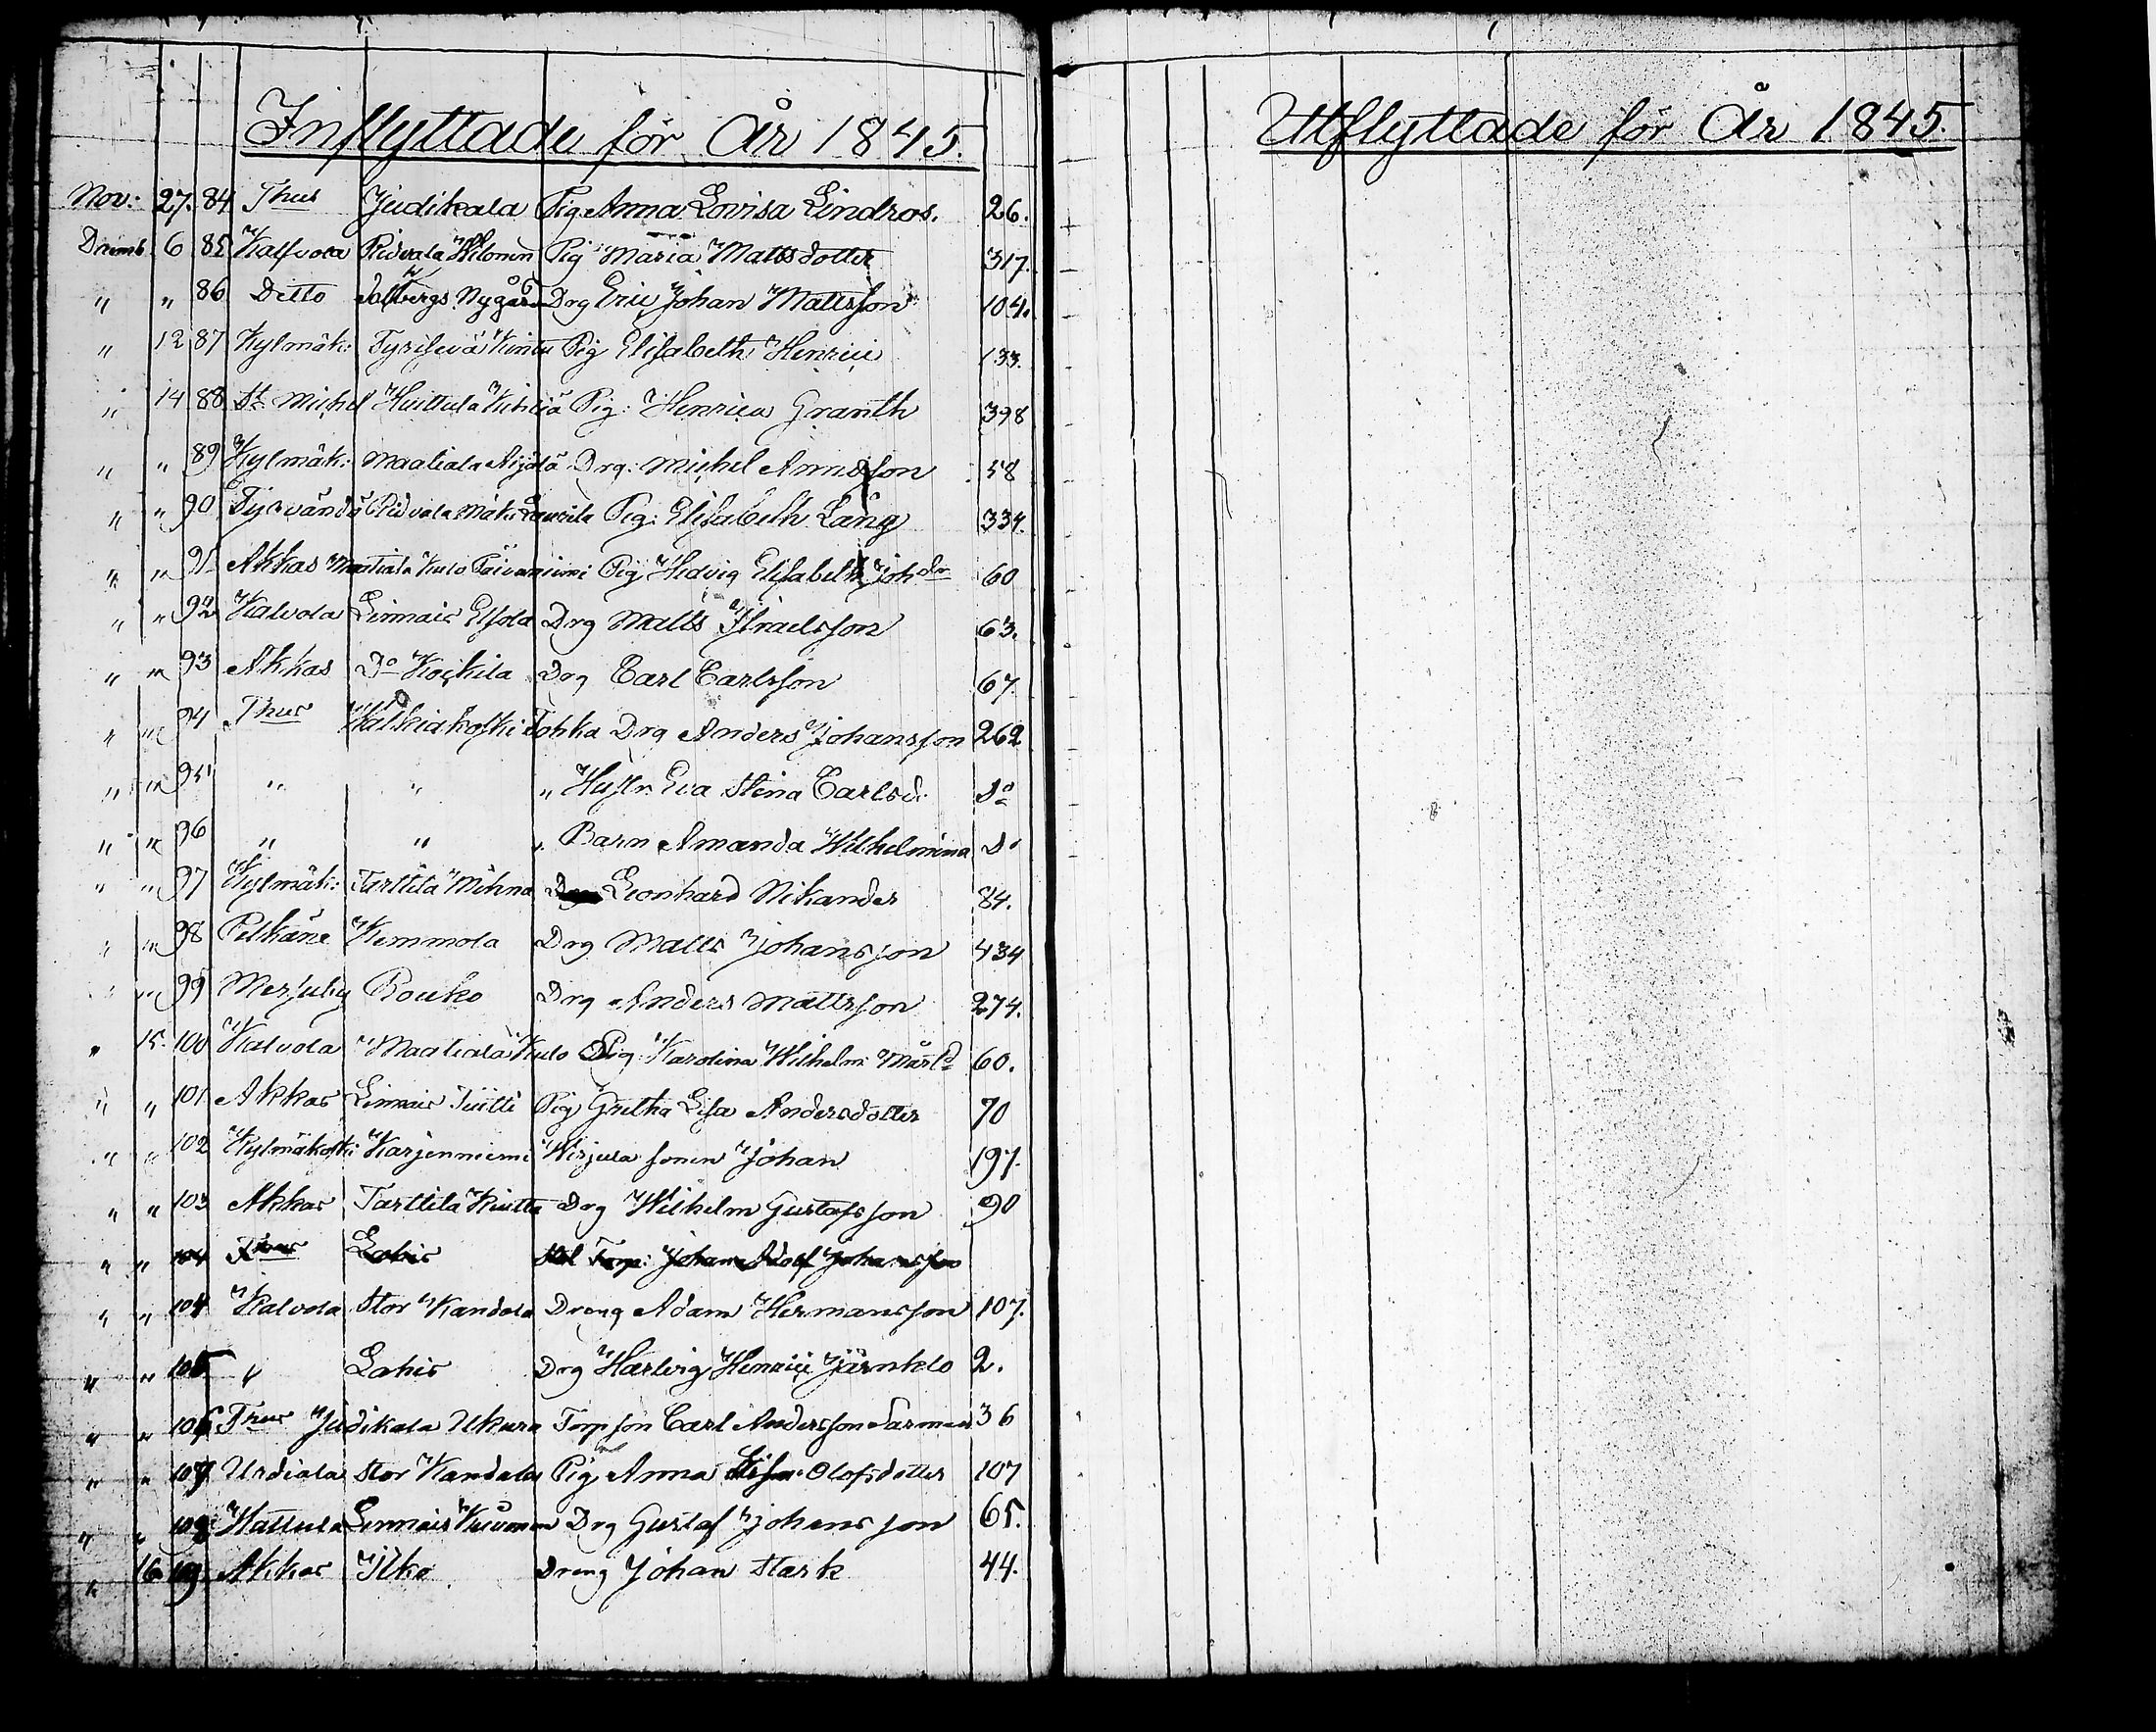 Inflyttade för År 1845.
Nov: 27. 84 Thus Judikala Pig. Anna Lovisa Lindros. 26.
Dcemb. 6 85 Kalfvola Ridvala Pig Maria Mattsdotter 317.
" " 86 Ditto Nygård Drg Eric Johan Mattsson 104.
" 12 87 Kylmäk: Pig Elisabeth Henrici 133.
" 14 88 St Michel Huittula Pig: Henrica Granth 398
" " 89 Kylmäk: Maatiala Äijälä Drg: Michel Andersson 58
" " 90 Tyrvändö Ridvala Mäki Laurila Pig: Elisabeth Lång 334.
" " 91 Akkas Maatiala Kulo Päivaniemi Pig Hedvig Elisabeth Joh dr 60
" " 92 Kalvola Linnais Elsola Drg Matts Israelsson 63.
" " 93 Akkas Do Kockila Drg Carl Carlsson 67.
" " 94 Thus Walkiakoski Tohka Drg Anders Johansson 262
" " 95 " " " Hustr. Eva Stina Carlsd. Do
" " 96 " " " Barn Amanda Wilhelmina Do
" " 97 Kylmäk: Tarttila Leonhard Nikander 84.
" " 98 Pelkäne Kemmola Drg Matts Johansson 434
" " 99 Messuby Rouko Drg Anders Mattsson 274.
" 15. 100 Kalvola Maatiala Kulo Pig: Karolina Wilhelm: 60.
" " 101 Akkas Linnais Pig Gretha Lisa Andersdotter 70
" " 102 Kylmäkoski Karjenniemi Wirjula sonen Johan 197.
" " 103 Akkas Tarttila Drg Wilhelm Gustafsson 90
" " 104 Thus Lahis Torp: Johan Adolf Johansson
" " 104 Kalvola Stor Kandola Dreng Adam Hermansson 107.
" " 105 " Lahis Drg Hartvig Henric Järnklo 2.
" " 106 Thus Judikala Ukura Torp son Carl Andersson 36
" " 107 Urdiala Stor Kandola Pig Anna Lisa Olofsdotter 107
" " 108 Hattula Linnais Drg Gustaf Johansson 65.
" 16 109. Akkas Ilko Dreng Johan Stark 44.
Utflyttade för År 1845.